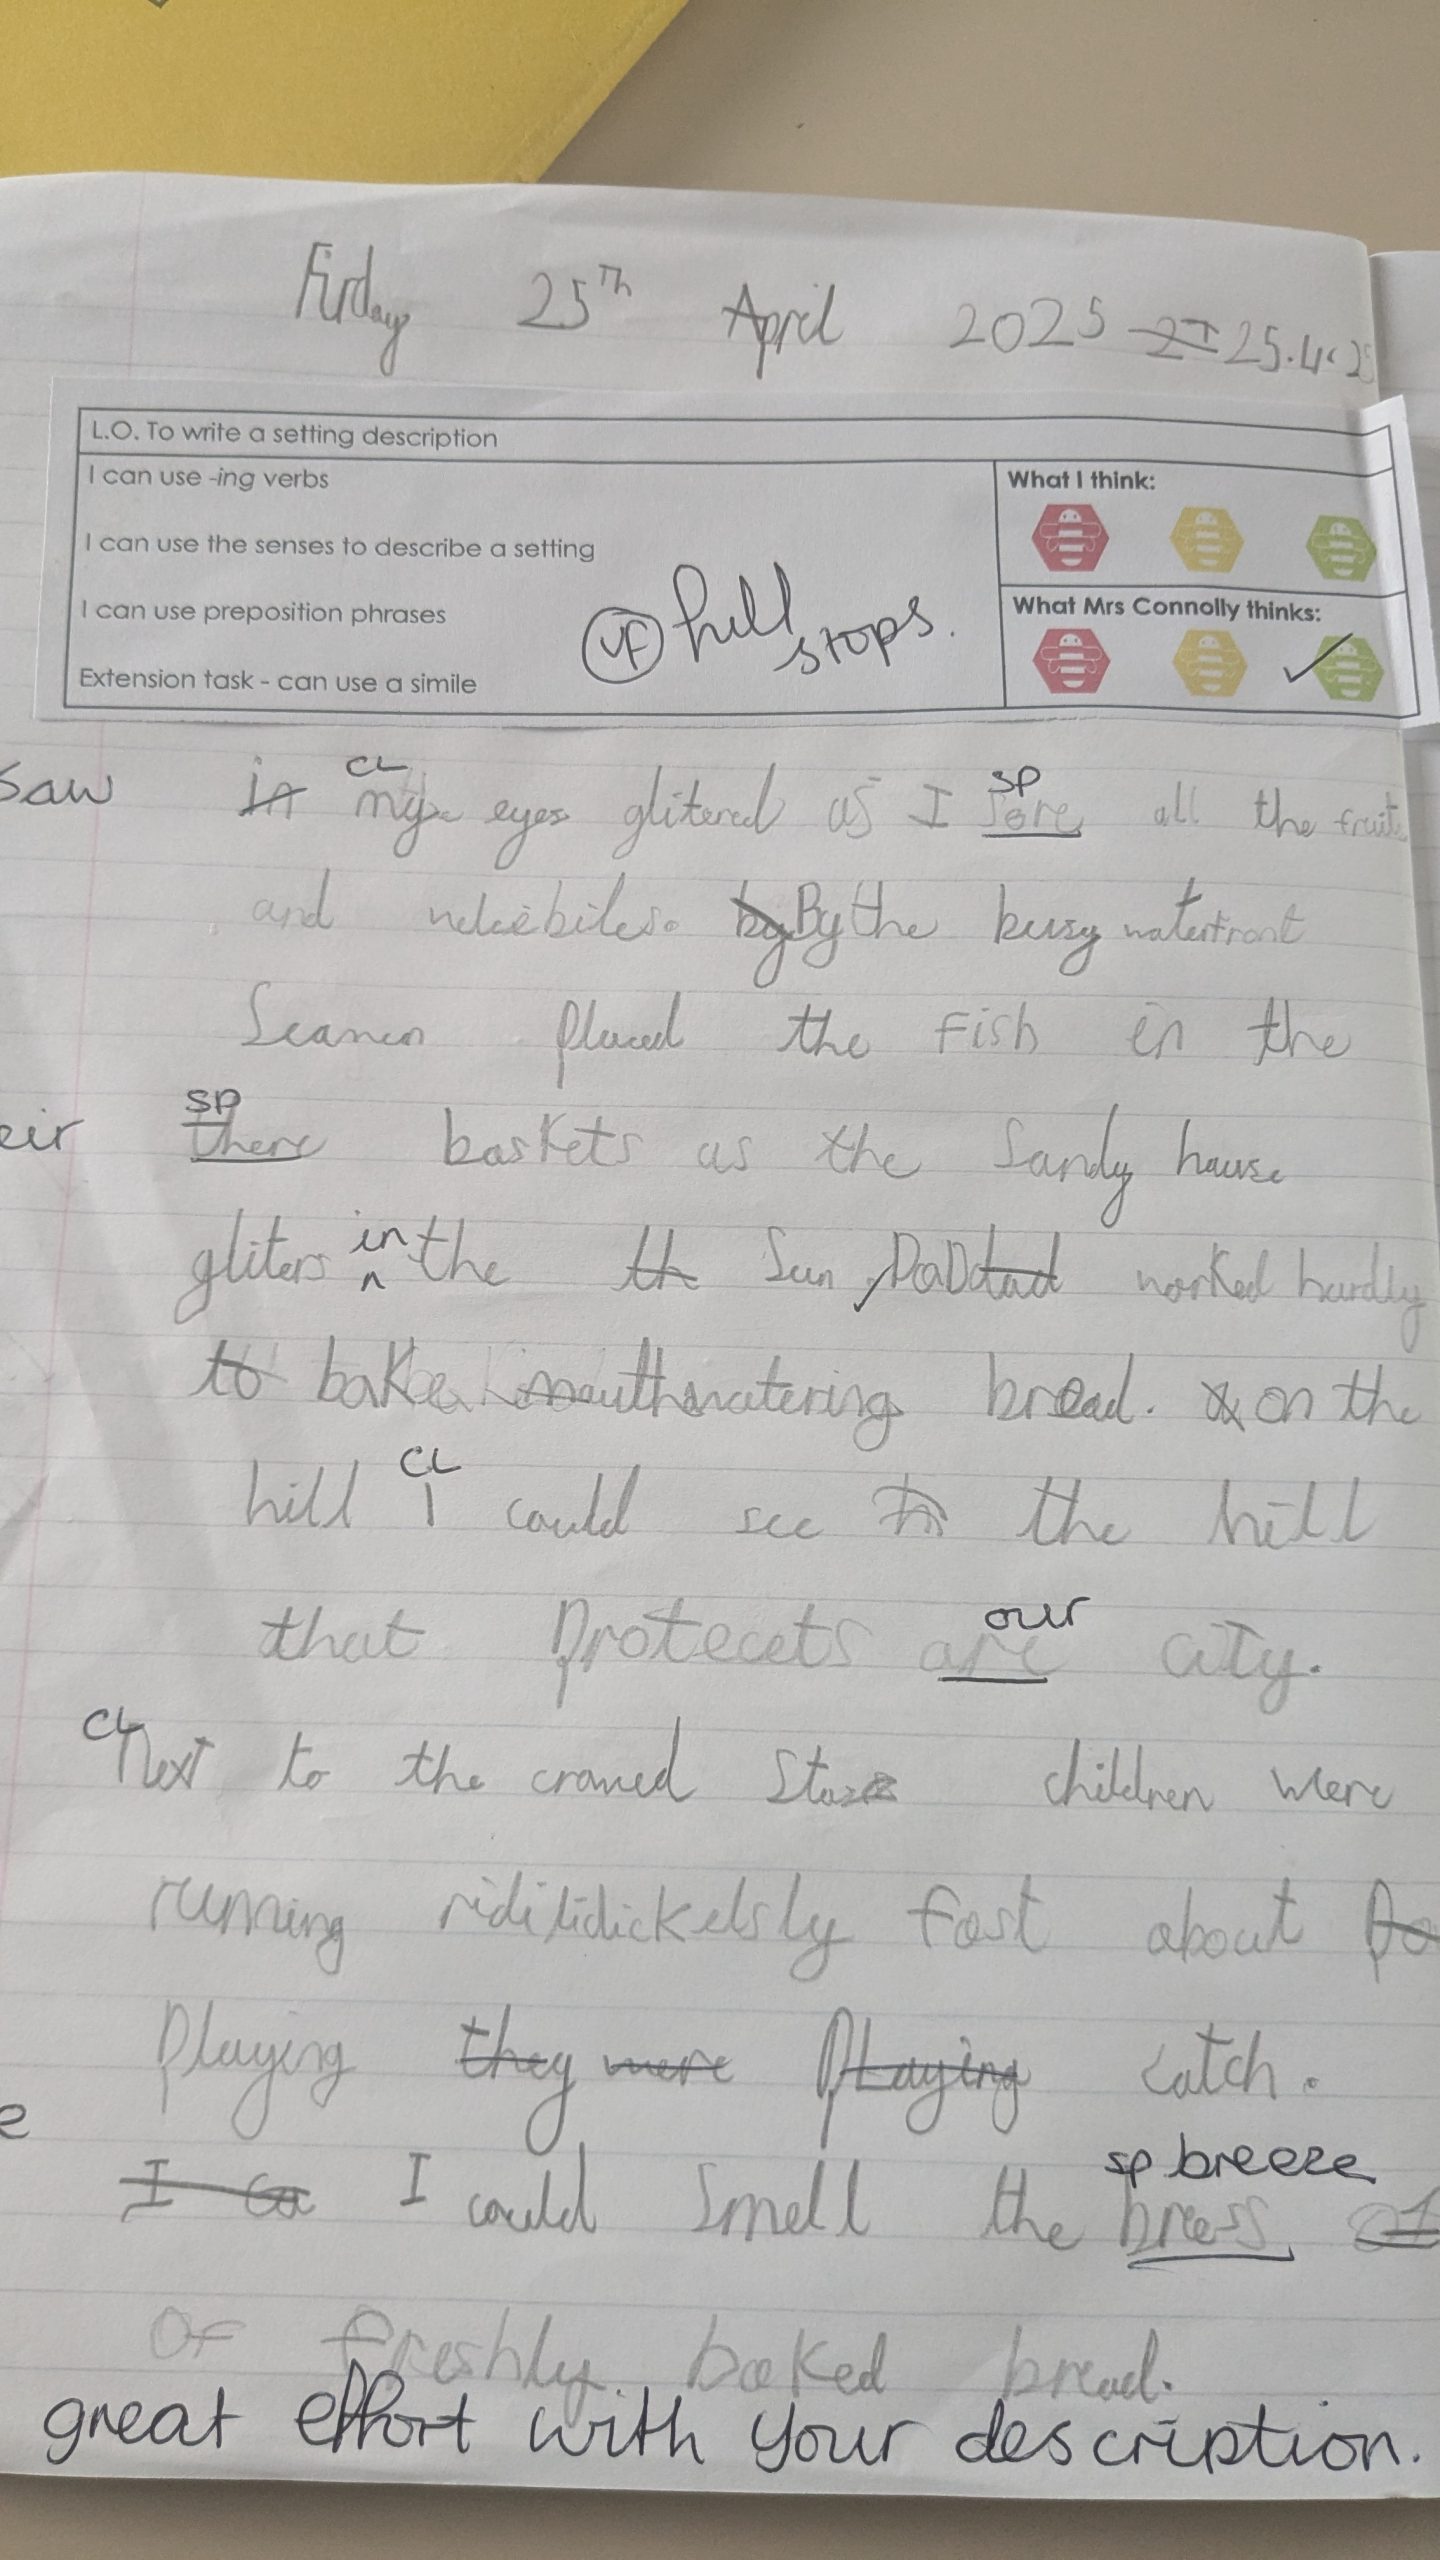 Firday 25Th April 2025 25.4.25
L.O. To write a setting description
I can use -ing verbs
What I think:
I can use the senses to describe a setting
I can use preposition phrases
What Mrs Connolly thinks:
VF full stops.
Extension task - can use a simile
CL sp
saw in my eyes glitered as I sore all the fruits
and By the busy waterfront
Seamen placed the Fish in the
sp
eir there baskets as the Sandy hause
in
gliters the th Sun, DaD dad worked hardly
to bake mouthwatering bread. on the
CL
hill I could see the hill
our
that Protecets are city.
CL
Next to the crowed children were
running ridilidickelsly fast about
Playing they were Playing catch.
e
sp breeze
I ca I could Smell the breess of
OF freshly baked bread.
great effort with your description.